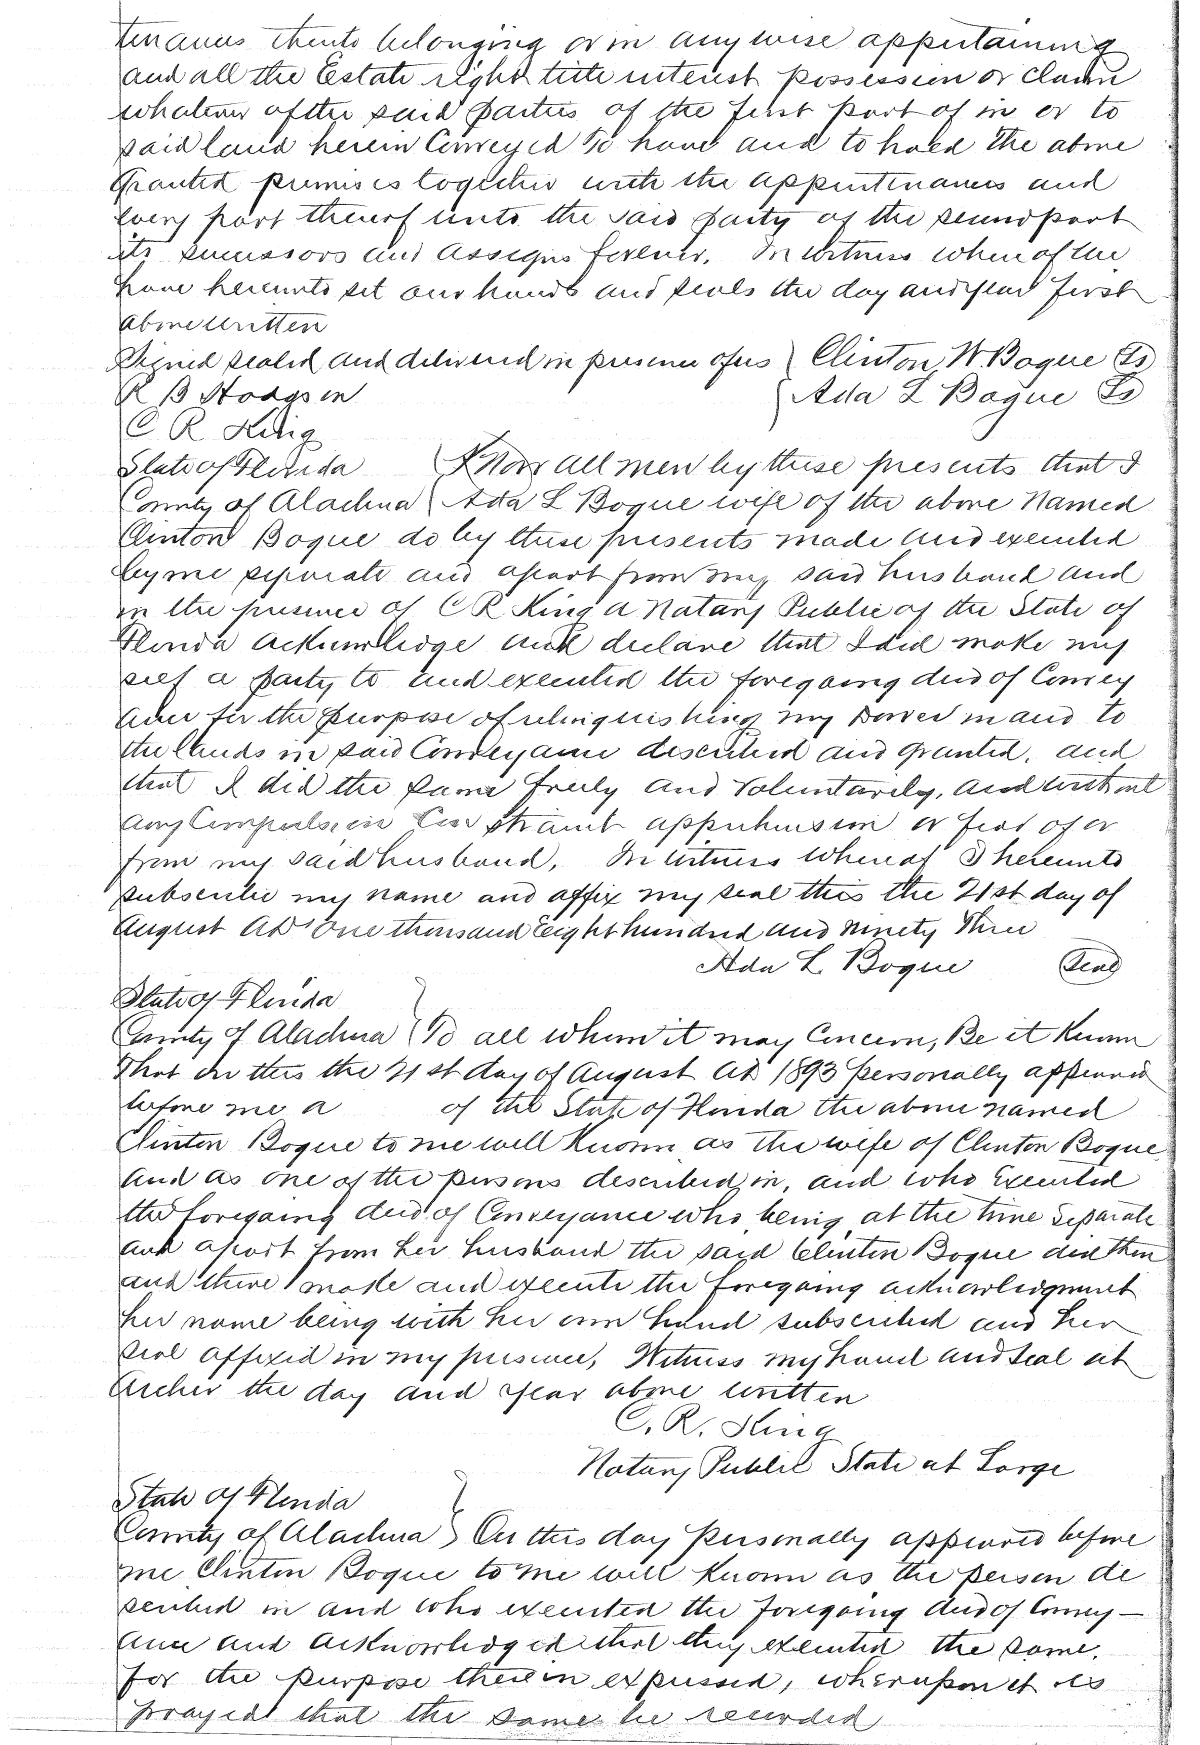 tenances thereto belonging or in any wise appertaining
and all the Estate right title interest possession or claim
whatever of the said parties of the first part of in or to
said land herein Conveyed To have and to hold the above
Granted premises together with the appurtenances and
every part thereof unto the said party of the second part
its successors and assigns forever. In witness whereof we
have hereunto set our hands and seals the day and year first
above written
Signed sealed and delivered in presence of us } Clinton W. Boque Ls
R B Hodgson } Ada L Boque Ls
C R King
State of Florida } Know all men by these presents that I
County of Alachua } Ada L Boque wife of the above Named
Clinton Boque do by these presents made and executed
by me separate and apart from my said husband and
in the presence of C R King a Notary Public of the State of
Florida acknowledge and declare that I did make my
self a party to and executed the foregoing deed of Convey
ance for the purpose of relinquishing my Dower in and to
the lands in said Conveyance described and granted, and
that I did the same freely and voluntarily, and without
any Compulsion Constraint apprehension or fear of or
from my said husband. In witness whereof I hereunto
subscribe my name and affix my seal this the 21st day of
August AD One thousand Eight hundred and Ninety Three
Ada L Boque Seal
State of Florida }
County of Alachua } To all whom it may Concern, Be it Known
That on this the 21st day of August AD 1893 personally appeared
before me a of the State of Florida the above named
Clinton Boque to me well Known as the wife of Clinton Boque
and as one of the persons described in, and who Executed
the foregoing deed of Conveyance who being at the time separate
and apart from her husband the said Clinton Boque did then
and there make and execute the foregoing acknowledgment
her name being with her own hand subscribed and her
seal affixed in my presence, Witness my hand and seal at
Archer the day and year above written
C. R. King
Notary Public State at Large
State of Florida }
County of Alachua } On this day personally appeared before
me Clinton Boque to me well Known as the person de
scribed in and who executed the foregoing deed of Convey—
ance and acknowledged that they executed the same.
for the purpose therein expressed, whereupon it is
prayed that the same be recorded